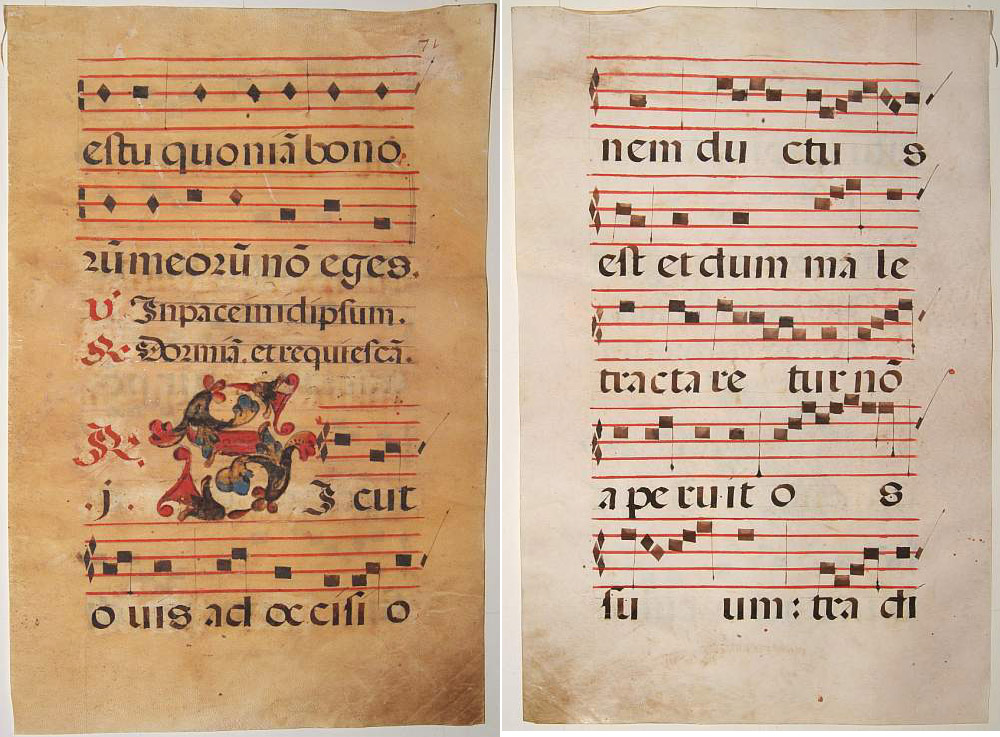 71
estu quoniã bono
rũ meorũ nõ eges.
V Inpace in idipsum.
R Dormiã. et requiescã.
R. j. SIcut
ouis ad occisio
nem du ctu s
est et dum ma le
tracta re tur nõ
aperuit o s
su um: tra di